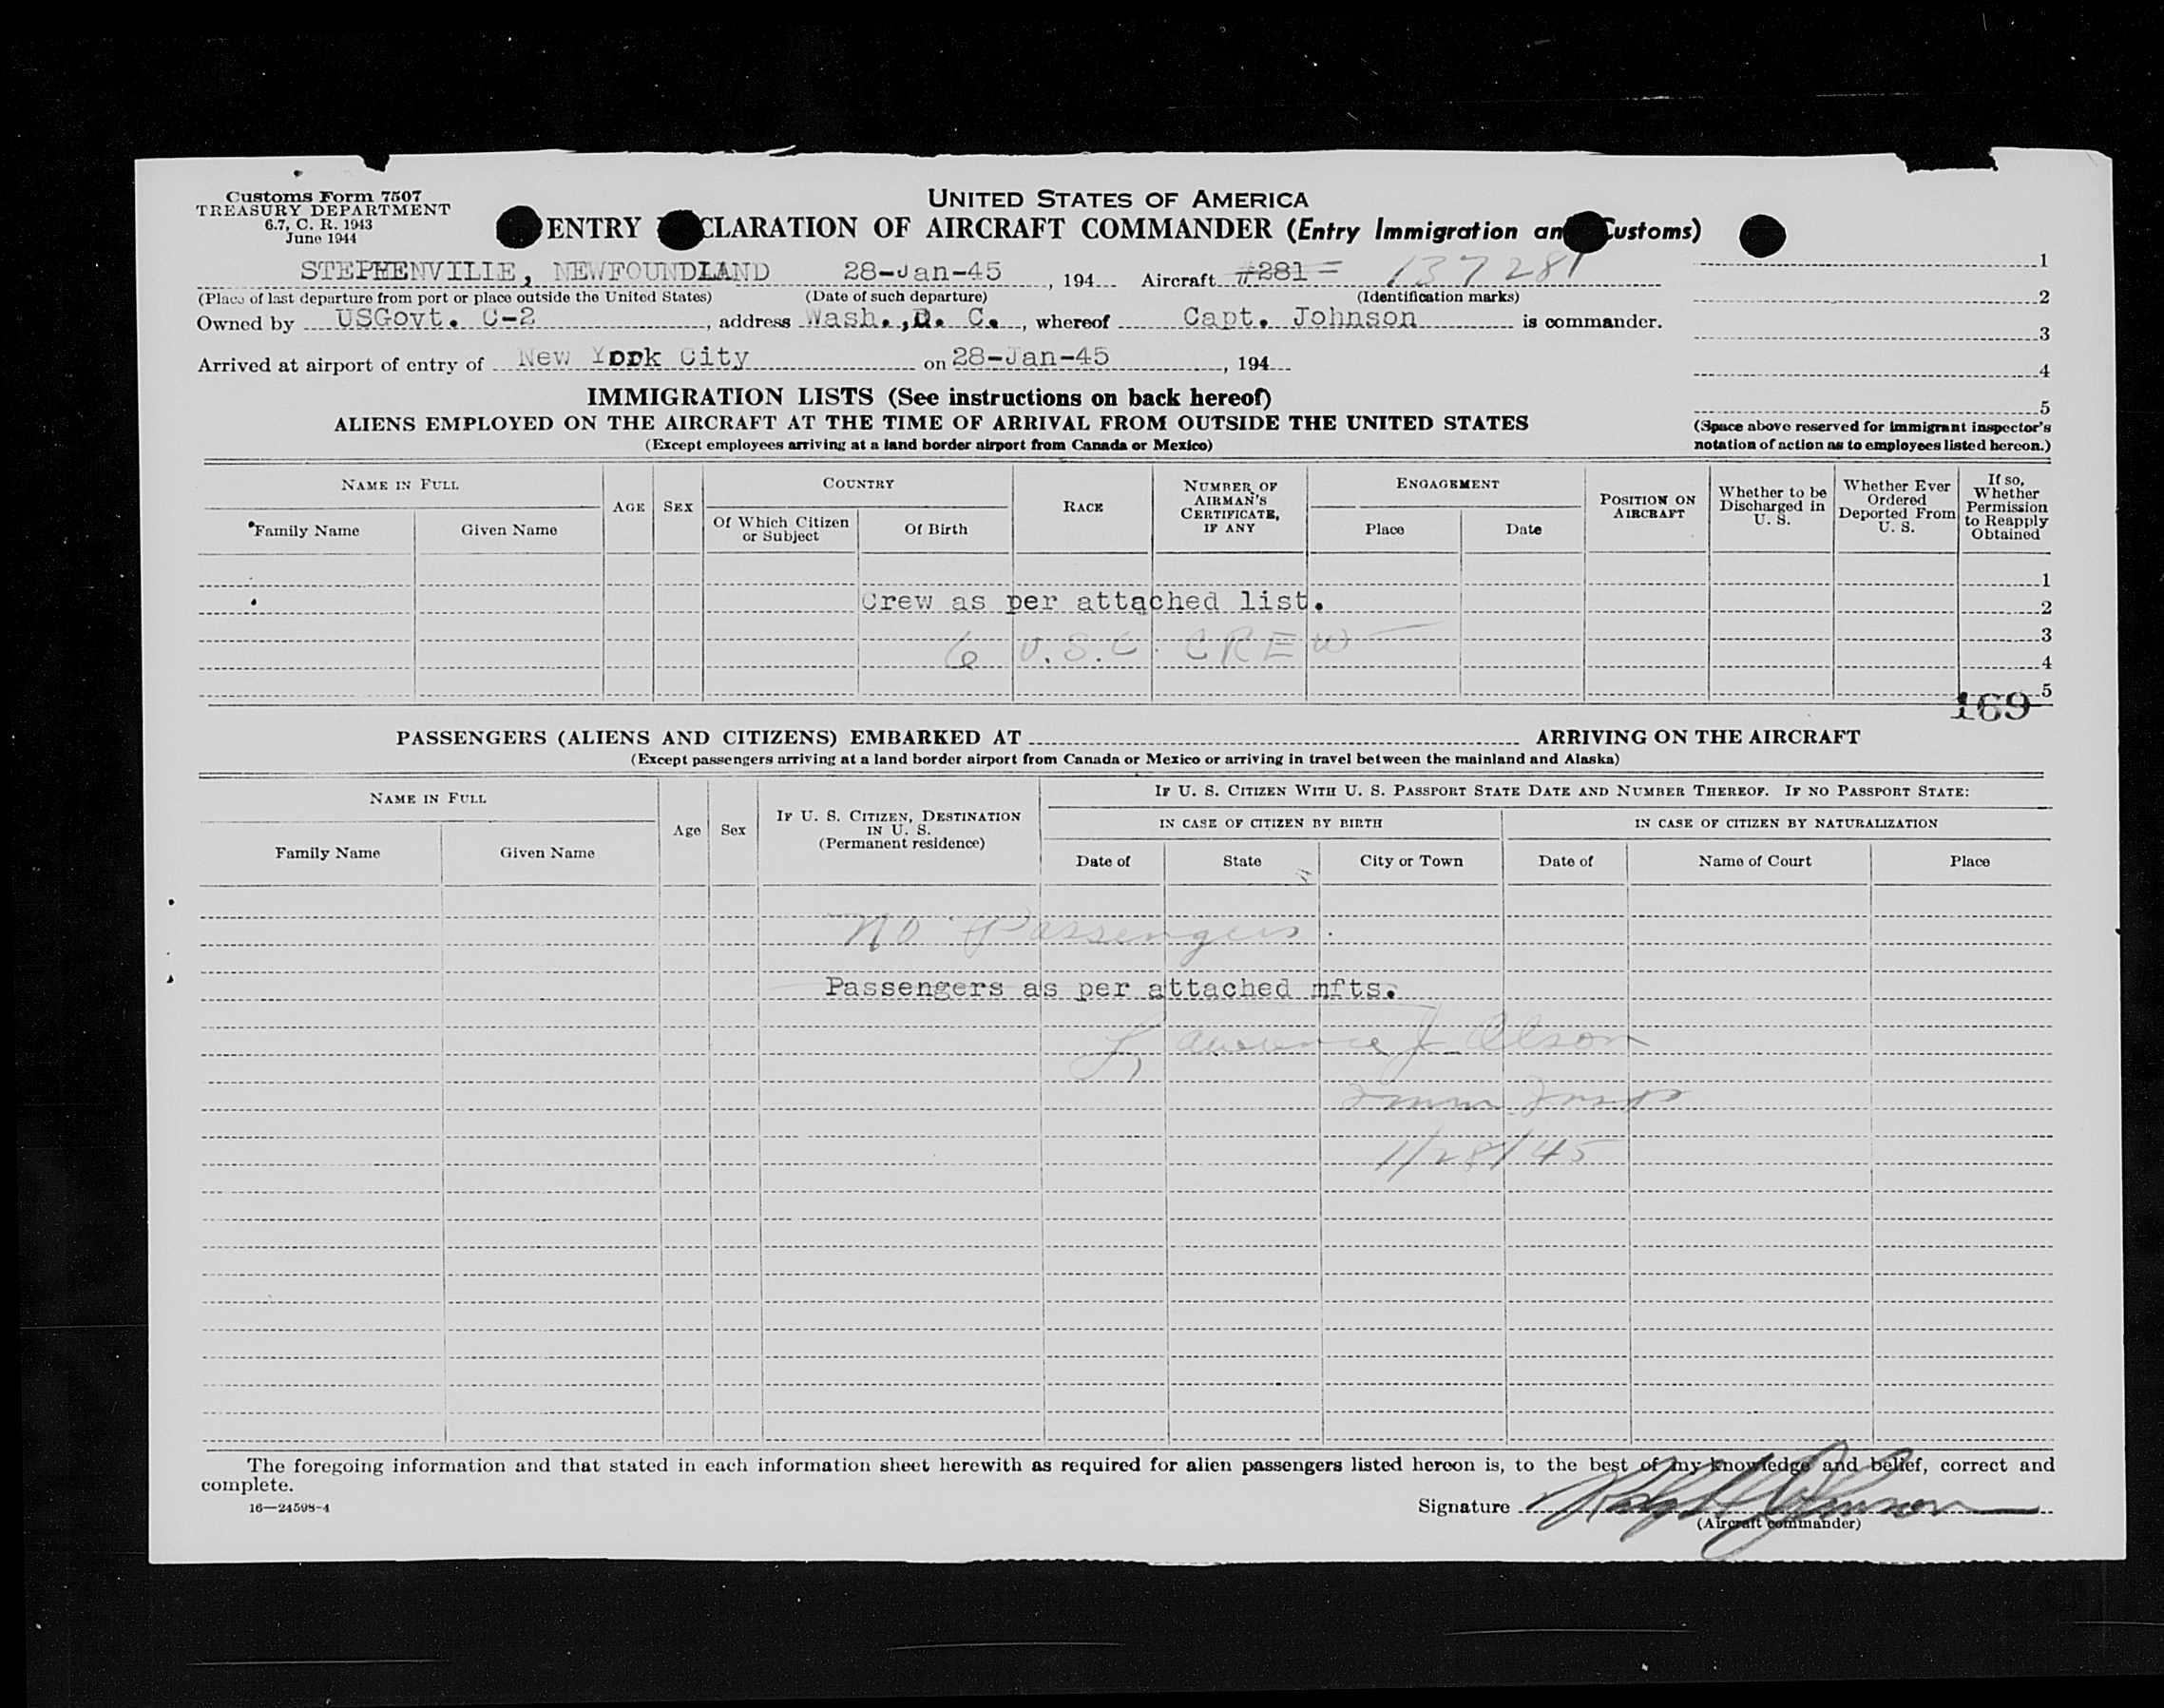 Customs Form 7507
TREASURY DEPARTMENT
6.7, C. R. 1943
June 1944
UNITED STATES OF AMERICA
ENTRY CLARATION OF AIRCRAFT COMMANDER (Entry Immigration an Customs)
STEPHENVILIE, NEWFOUNDLAND 28-Jan-45, 194 Aircraft #281= 137281
(Place of last departure from port or place outside the United States) (Date of such departure) (Identification marks)
Owned by USGovt. C-2, address Wash.,D. C., whereof Capt. Johnson is commander.
Arrived at airport of entry of New York City on 28-Jan-45, 194
1
2
3
4
5
(Space above reserved for immigrant inspector's
notation of action as to employees listed hereon.)
IMMIGRATION LISTS (See instructions on back hereof)
ALIENS EMPLOYED ON THE AIRCRAFT AT THE TIME OF ARRIVAL FROM OUTSIDE THE UNITED STATES
(Except employees arriving at a land border airport from Canada or Mexico)
NAME IN FULL
Family Name
Given Name
AGE
SEX
COUNTRY
Of Which Citizen
or Subject
Of Birth
RACE
NUMBER OF
AIRMAN'S
CERTIFICATE,
IF ANY
ENGAGEMENT
Place
Date
POSITION ON
AIRCRAFT
Whether to be
Discharged in
U. S.
Whether Ever
Ordered
Deported From
U. S.
If so,
Whether
Permission
to Reapply
Obtained
1
Crew as per attached list. 2
6 U.S.C. CREW 3
4
5
169
PASSENGERS (ALIENS AND CITIZENS) EMBARKED AT ARRIVING ON THE AIRCRAFT
(Except passengers arriving at a land border airport from Canada or Mexico or arriving in travel between the mainland and Alaska)
NAME IN FULL
Family Name
Given Name
Age
Sex
IF U. S. CITIZEN, DESTINATION
IN U. S.
(Permanent residence)
IF U. S. CITIZEN WITH U. S. PASSPORT STATE DATE AND NUMBER THEREOF. IF NO PASSPORT STATE:
IN CASE OF CITIZEN BY BIRTH
Date of
State
City or Town
IN CASE OF CITIZEN BY NATURALIZATION
Date of
Name of Court
Place
No Passengers.
Passengers as per attached mfts.
Lawrence J Olson
1/28/45
The foregoing information and that stated in each information sheet herewith as required for alien passengers listed hereon is, to the best of my knowledge and belief, correct and
complete.
16—24598-4
Signature Ralph Johnson
(Aircraft commander)